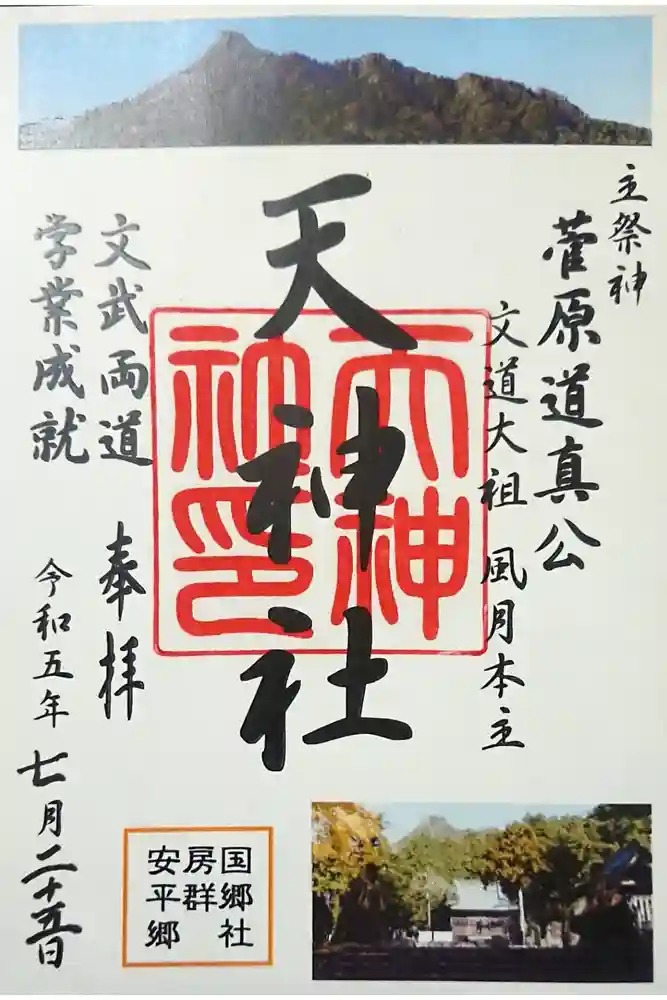 主祭神
菅原道真公
文道大祖 風月本主
天神社
天神
社印
文武両道
学業成就
奉拝
令和五年 七月二十五日
国郷社
房群
安平郷